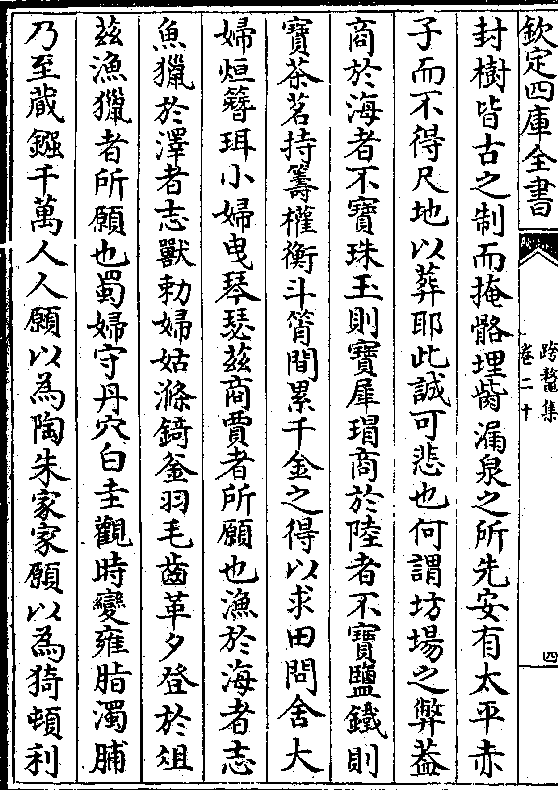 欽定四庫全書
跨鼇集
卷二十
四
封樹皆古之制而掩骼埋胔漏泉之所先安有太平赤
子而不得尺地以葬耶此誠可悲也何謂坊場之弊葢
商於海者不寶珠玉則寶犀瑁商於陸者不寶鹽鐵則
寶茶茗持籌權衡斗筲間累千金之得以求田問舍大
婦烜簪珥小婦曳琴瑟兹商賈者所願也漁於海者志
魚獵於澤者志獸勅婦姑滌錡釜羽毛齒革夕登於俎
兹漁獵者所願也蜀婦守丹穴白圭觀時變雍脂濁脯
乃至蔵鏹千萬人人願以為陶朱家家願以為猗頓利